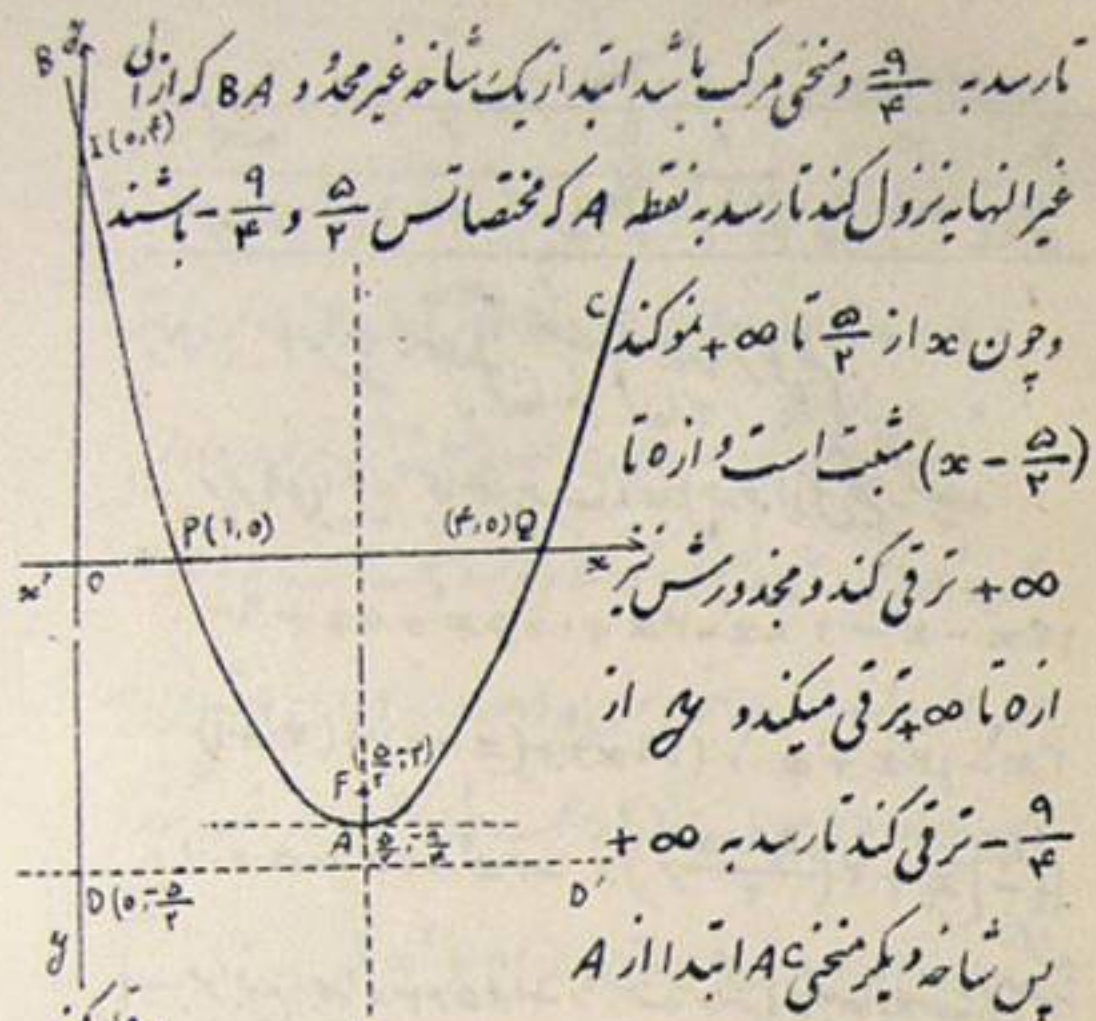 تا رسد به -۹/۴ و منحنی مرکب باشد ابتدا از یک شاخه غیر محدود BA که از الی
غیر النهایه نزول کند تا رسد به نقطه A که مختصاتس ۵/۲ و -۹/۴ باشند
و چون x از ۵/۲ تا +∞ نمو کند
(x - ۵/۲) مثبت است و از ۰ تا
+∞ ترقی کند و مجذورش نیز
از ۰ تا +∞ ترقی میکند و y از
-۹/۴ ترقی کند تا رسد به +∞
پس شاخه دیگر منحنی AC ابتدا از A
B
y
I(۰,۴)
C
P(۱,۰)
(۴,۰)Q
x'
O
x
F(۵/۲,-۲)
A
۵/۲,-۹/۴
D(۰,-۵/۲
D'
y'